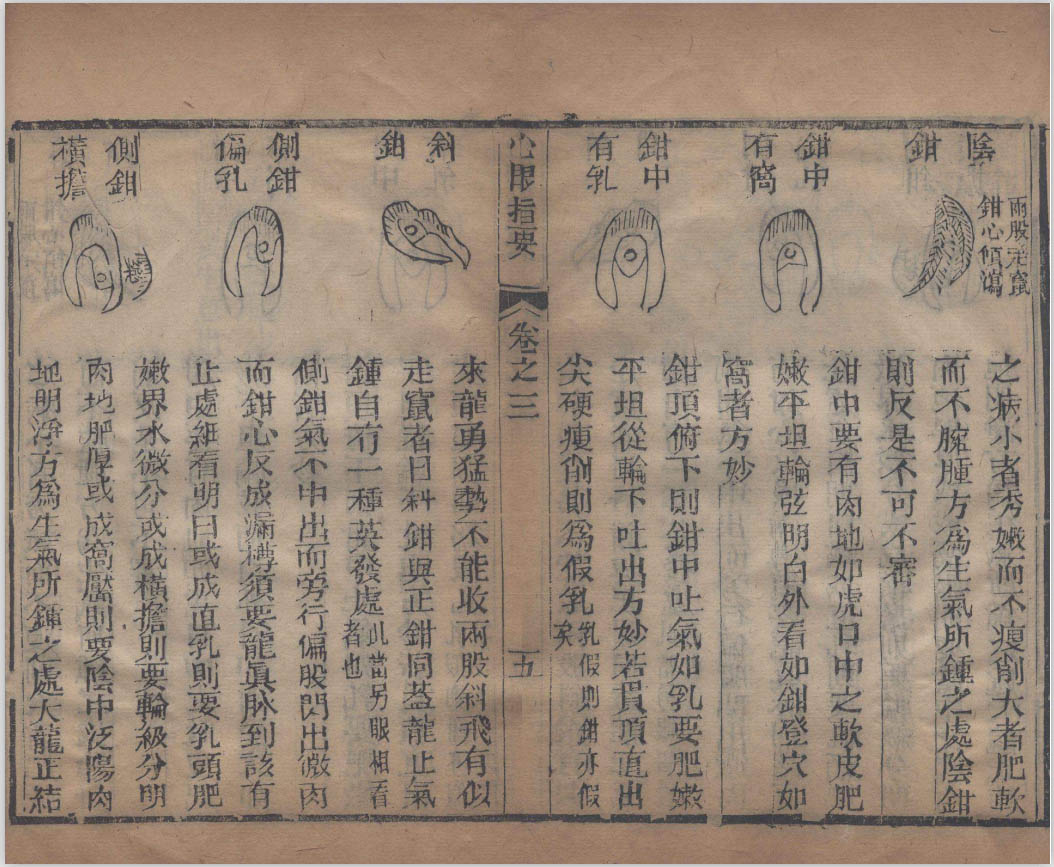 陰
鉗
兩股走竄
鉗心傾瀉
之病小者秀嫩而不瘦削大者肥軟
而不臃腫方為生氣所鍾之處陰鉗
則反是不可不審
鉗中
有窩
鉗中要有肉地如虎口中之軟皮肥
嫩平坦輪弦明白外看如鉗登穴如
窩者方妙
鉗中
有乳
鉗頂俯下則鉗中吐氣如乳要肥嫩
平坦從輪下吐出方妙若貫頂直出
尖硬瘦削則為假乳乳假則鉗亦假
矣
心眼指要
卷之三
五
斜
鉗
來龍勇猛勢不能收兩股斜飛有似
走竄者曰斜鉗與正鉗同葢龍止氣
鍾自有一種英發處此當另眼相看
者也
側鉗
偏乳
側鉗氣不中出而旁行偏股閃出微肉
而鉗心反成漏槽須要龍眞脉到該有
止處細看明白或成直乳則要乳頭肥
側鉗
橫擔
嫩界水微分或成橫擔則要輪級分明
肉地肥厚或成窩靨則要陰中泛陽肉
地明淨方為生氣所鍾之處大龍正結